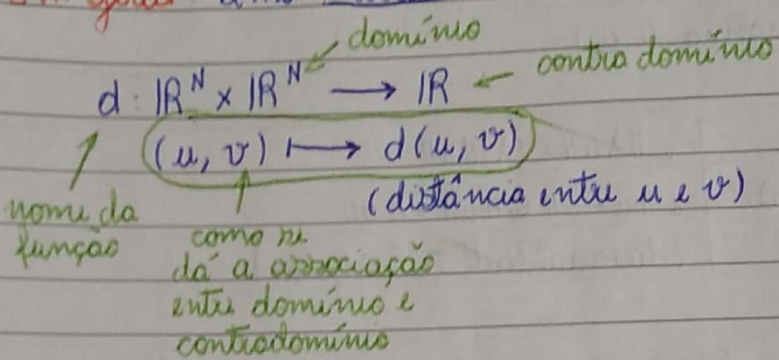 domínio
d : ℝᴺ × ℝᴺ ⟶ ℝ
contra domínio
(u, v) ⟼ d(u, v)
(distância entre u e v)
nome da
função
como se
dá a associação
entre domínio e
contradomínio